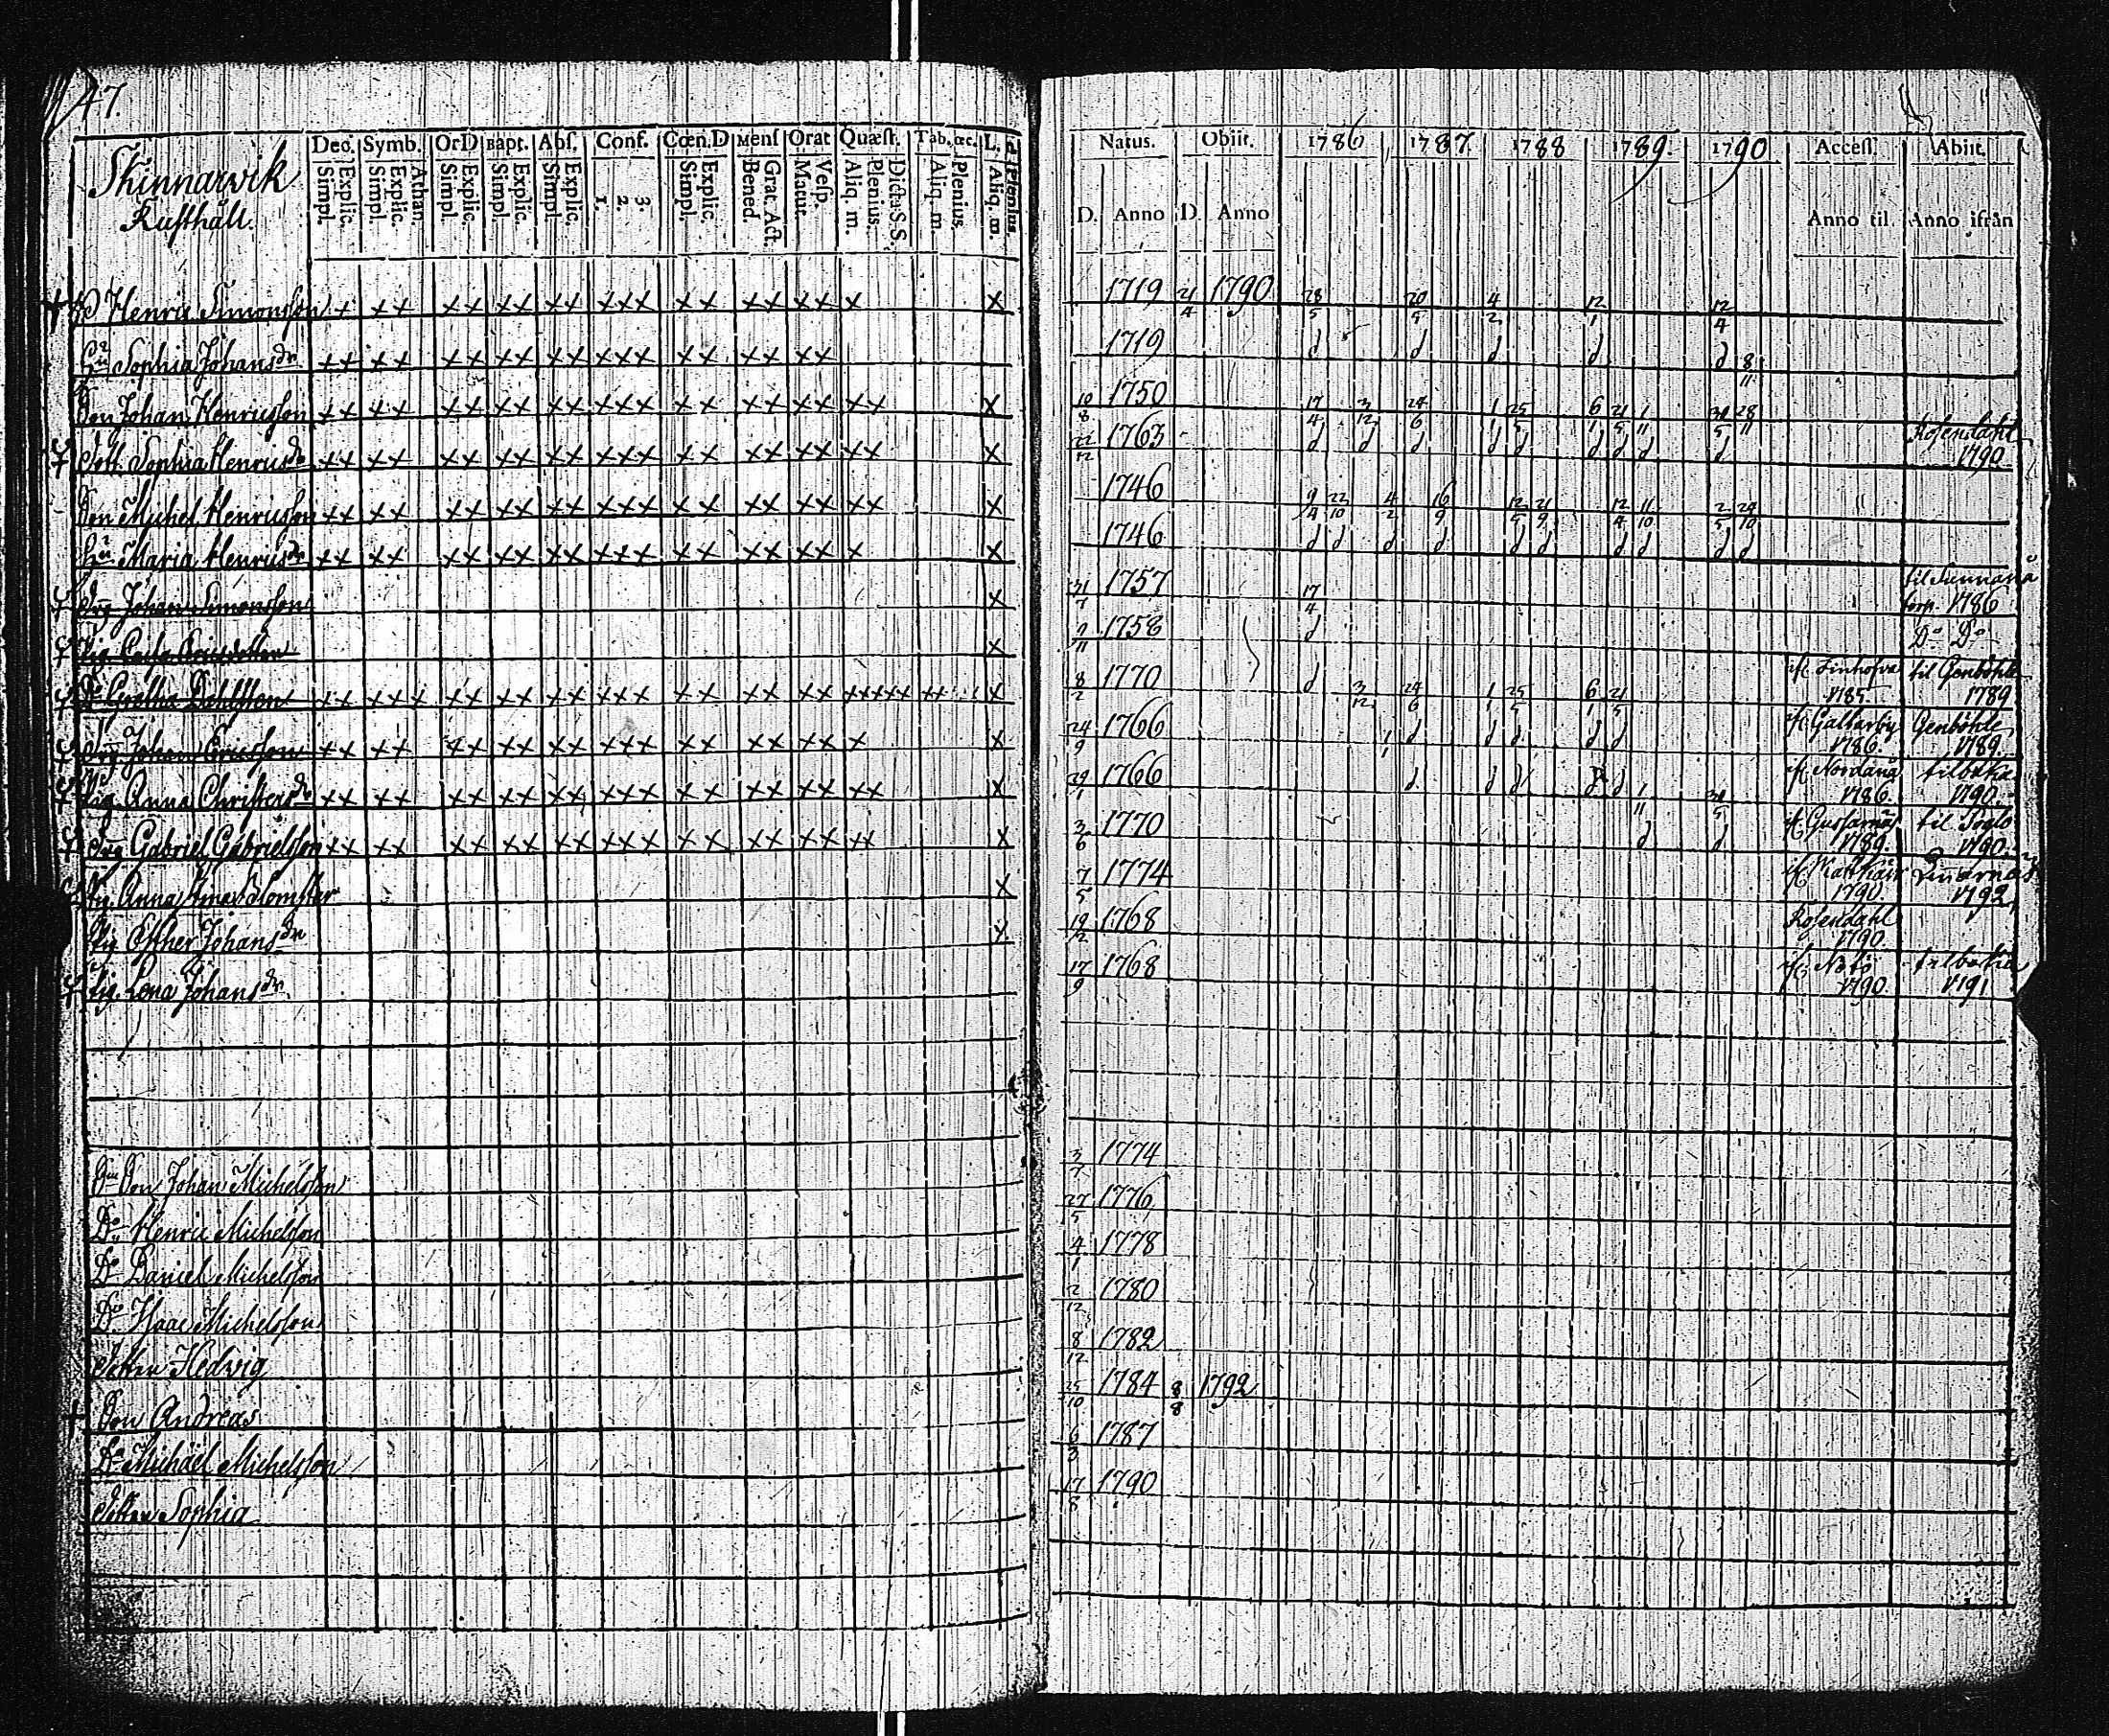 47.
Skinnarvik
Rusthåll.
Dec. Symb. OrD Bapt. Abs. Conf. Cœn.D Mens Orat Quæst. Tab. œc. L.
Simpl. Explic. Simpl. Explic. Athan. Simpl. Explic. Simpl. Explic. Simpl. Explic. 1. 2. 3. Simpl. Explic. Bened. Grat. Act. Matut. Vesp. Aliq. m. Plenius. Dicta S.S. Aliq. m. Plenius. Aliq. m. Plenius.
Natus. Obiit. 1786 1787. 1788 1789. 1790 Access. Abiit.
D. Anno D. Anno Anno til. Anno ifrån
Henric Simonsson xx xx xx xx xxx xx xx xx x x 1719 21/4 1790 28/5 20/5 4/2 12/1 12/4
Sophia Johansdr xx xx xx xx xx xxx xx xx xx 1719 d d d d d 8/11
Son Johan Henricsson xx xx xx xx xx xxx xx xx xx xx x 10/8 1750 17/4 3/12 24/6 1/1 25/5 6/1 21/5 1/11 28/11
Dott. Sophia Henricsdr xx xx xx xx xx xxx xx xx xx xx x 22/12 1763 d d d d d d d d d Rosendahl 1790
Son Michel Henricsson xx xx xx xx xx xxx xx xx xx xx x 1746 9/4 22/10 4/2 16/9 12/5 21/9 12/4 11/10 2/5 24/10
Maria Henricsdr xx xx xx xx xx xxx xx xx xx x x 1746 d d d d d d d d d d
Johan Simonsson x 31/7 1757 17/4 til Sunnanå torp. 1786
Pig. Caisa x 11 1758 d Do Do
Greta xx xxx xx xx xx xxx xx xx xx xxxxx xx x 8/2 1770 d 3/12 24/6 1/1 25/5 6/1 21/5 1785 til Genböhle 1789
Drg Johan Ericsson xx xx xx xx xx xxx xx xx xx x x 24/9 1766 1/1 d d d d d ifr. Galtarby 1786. Genböhle 1789.
Pig. Anna Christersdr xx xx xx xx xx xxx xx xx xx xx x 29/1 1766 d d d d 1/11 ifr. Nordanå 1786. tilbaka 1790.
Drg Gabriel Gabrielsson xx xx xx xx xx xxx xx xx xx xx x 3/6 1770 d d 1789. 1790.
Pig. Anna Blomster x 7/5 1774 1790. 1792
Pig. Esther Johansdr x 19/12 1768 Rosendahl 1790.
Pig. Lena Johansdr 17/9 1768 ifr. Nötö 1790 tilbaka 1791
Son Johan Michelsson 3/7 1774
Do Henric Michelsson 27/5 1776
Do Daniel Michelsson 4/1 1778
Do Isaac Michelsson 12/12 1780
Dotter Hedvig 8/12 1782
Son Andreas 25/10 1784 8/8 1792
Do Michäel Michelsson 6/3 1787
Dotter Sophia 17/8 1790